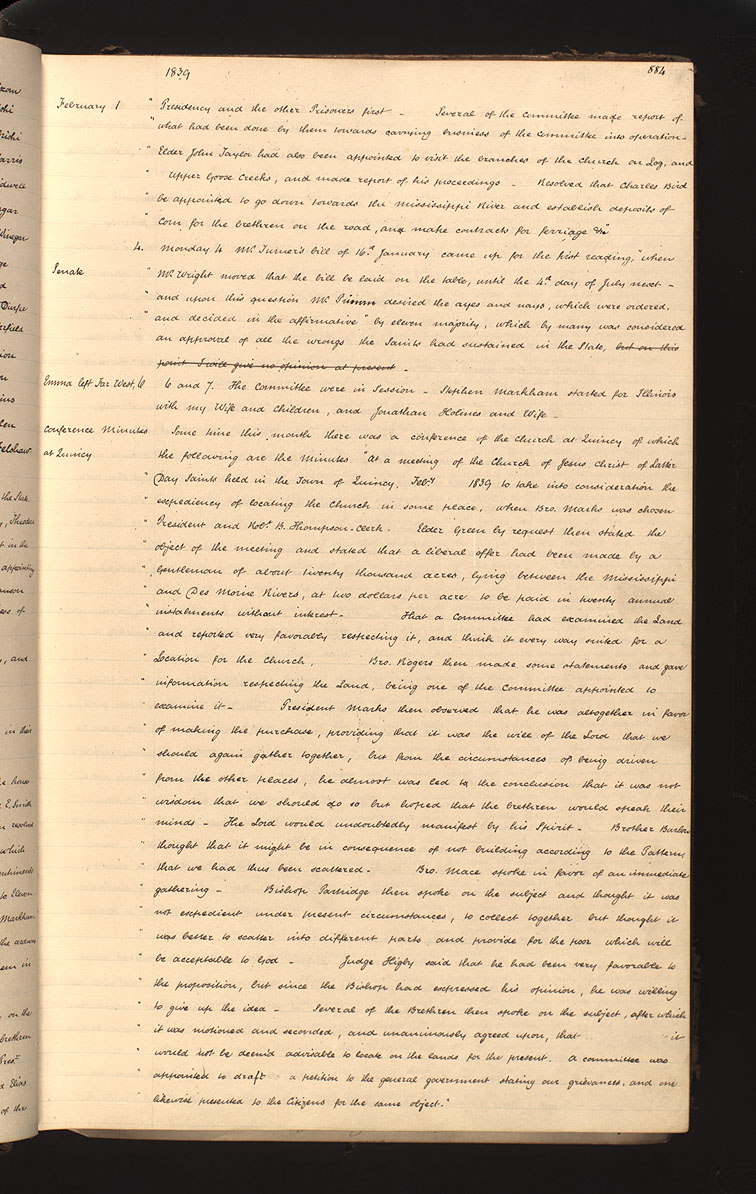 1839 884
February 1 " Presidency and the other Prisoners first - Several of the committee made report of
" what had been done by them towards carrying business of the committee into operation -
" Elder John Taylor had also been appointed to visit the branches of the church on Log, and
" Upper Goose Creeks, and made report of his proceedings - Resolved that Charles Bird
" be appointed to go down towards the Mississippi River and establish deposits of
" Corn for the brethren on the road, and make contracts for ferriage &c"
4. Monday 4 Mr. Turner's bill of 16th January came up for the first reading, "when
Senate " Mr. Wright moved that the bill be laid on the table, until the 4th day of July next -
" and upon this question Mr. Primm desired the ayes and nays, which were ordered,
" and decided in the affirmative" by eleven majority, which by many was considered
an approval of all the wrongs the Saints had sustained in the State, but on this
point I will give no opinion at present -
Emma left Far West, 6 6 and 7. The Committee were in Session - Stephen Markham started for Illinois
with my Wife and children, and Jonathan Holmes and Wife -
Conference Minutes Some time this month there was a conference of the Church at Quincy of which
at Quincy the following are the Minutes "At a meeting of the Church of Jesus Christ of Latter
" Day Saints held in the Town of Quincy, Feby 1839 to take into consideration the
" expediency of locating the Church in some place, when Bro. Marks was chosen
" President and Robt. B. Thompson - Clerk. Elder Green by request then stated the
" object of the meeting and stated that a liberal offer had been made by a
" Gentleman of about Twenty thousand acres, lying between the Mississippi
" and Des Moine Rivers, at two dollars per acre to be paid in twenty annual
" instalments without interest - That a Committee had examined the Land
" and reported very favorably respecting it, and think it every way suited for a
" Location for the Church. Bro. Rogers then made some statements and gave
" information respecting the Land, being one of the Committee appointed to
" examine it - President Marks then observed that he was altogether in favor
" of making the purchase, providing that it was the will of the Lord that we
" should again gather together, but from the circumstances of being driven
" from the other places, he almost was led to the conclusion that it was not
" wisdom that we should do so but hoped that the brethren would speak their
" minds - The Lord would undoubtedly manifest by his Spirit - Brother
" thought that it might be in consequence of not building according to the Pattern,
" that we had thus been scattered - Bro. Mace spoke in favor of an immediate
" gathering - Bishop Partridge then spoke on the subject and thought it was
" not expedient under present circumstances, to collect together but thought it
" was better to scatter into different parts and provide for the poor which will
" be acceptable to God - Judge Higby said that he had been very favorable to
" the proposition, but since the Bishop had expressed his opinion, he was willing
" to give up the idea - Several of the Brethren then spoke on the subject, after which
" it was motioned and seconded, and unanimously agreed upon, that it
" would not be deemed advisable to locate on the lands for the present. A committee was
" appointed to draft a petition to the general government stating our grievances, and one
" likewise presented to the Citizens for the same object."